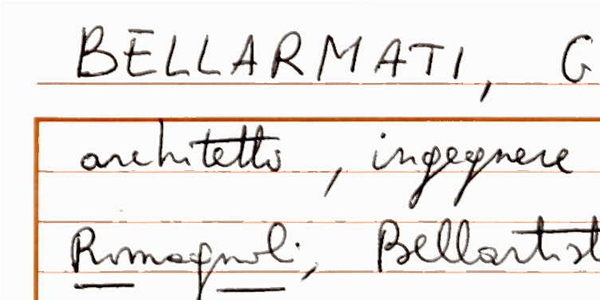 BELLARMATI, G
architetto, ingegnere
Romagnoli, Bellartist